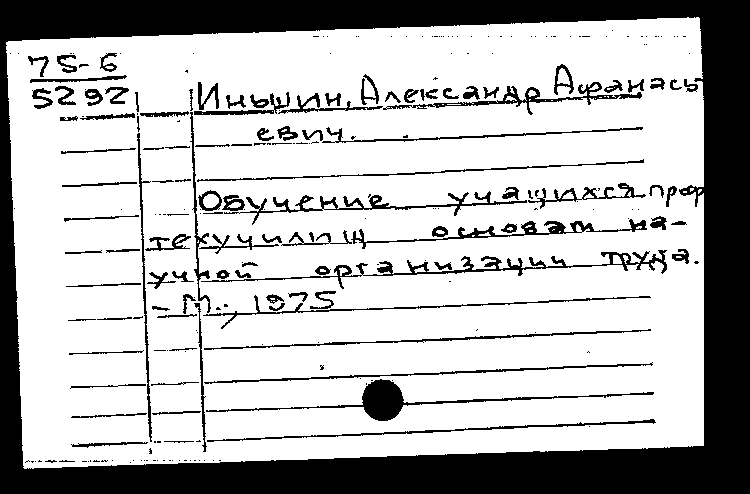 75-6
5292
Иньшин, Александр Афанась
евич.
Обучение учащихся проф
техучилищ основам на-
учной организации труда.
- М., 1975